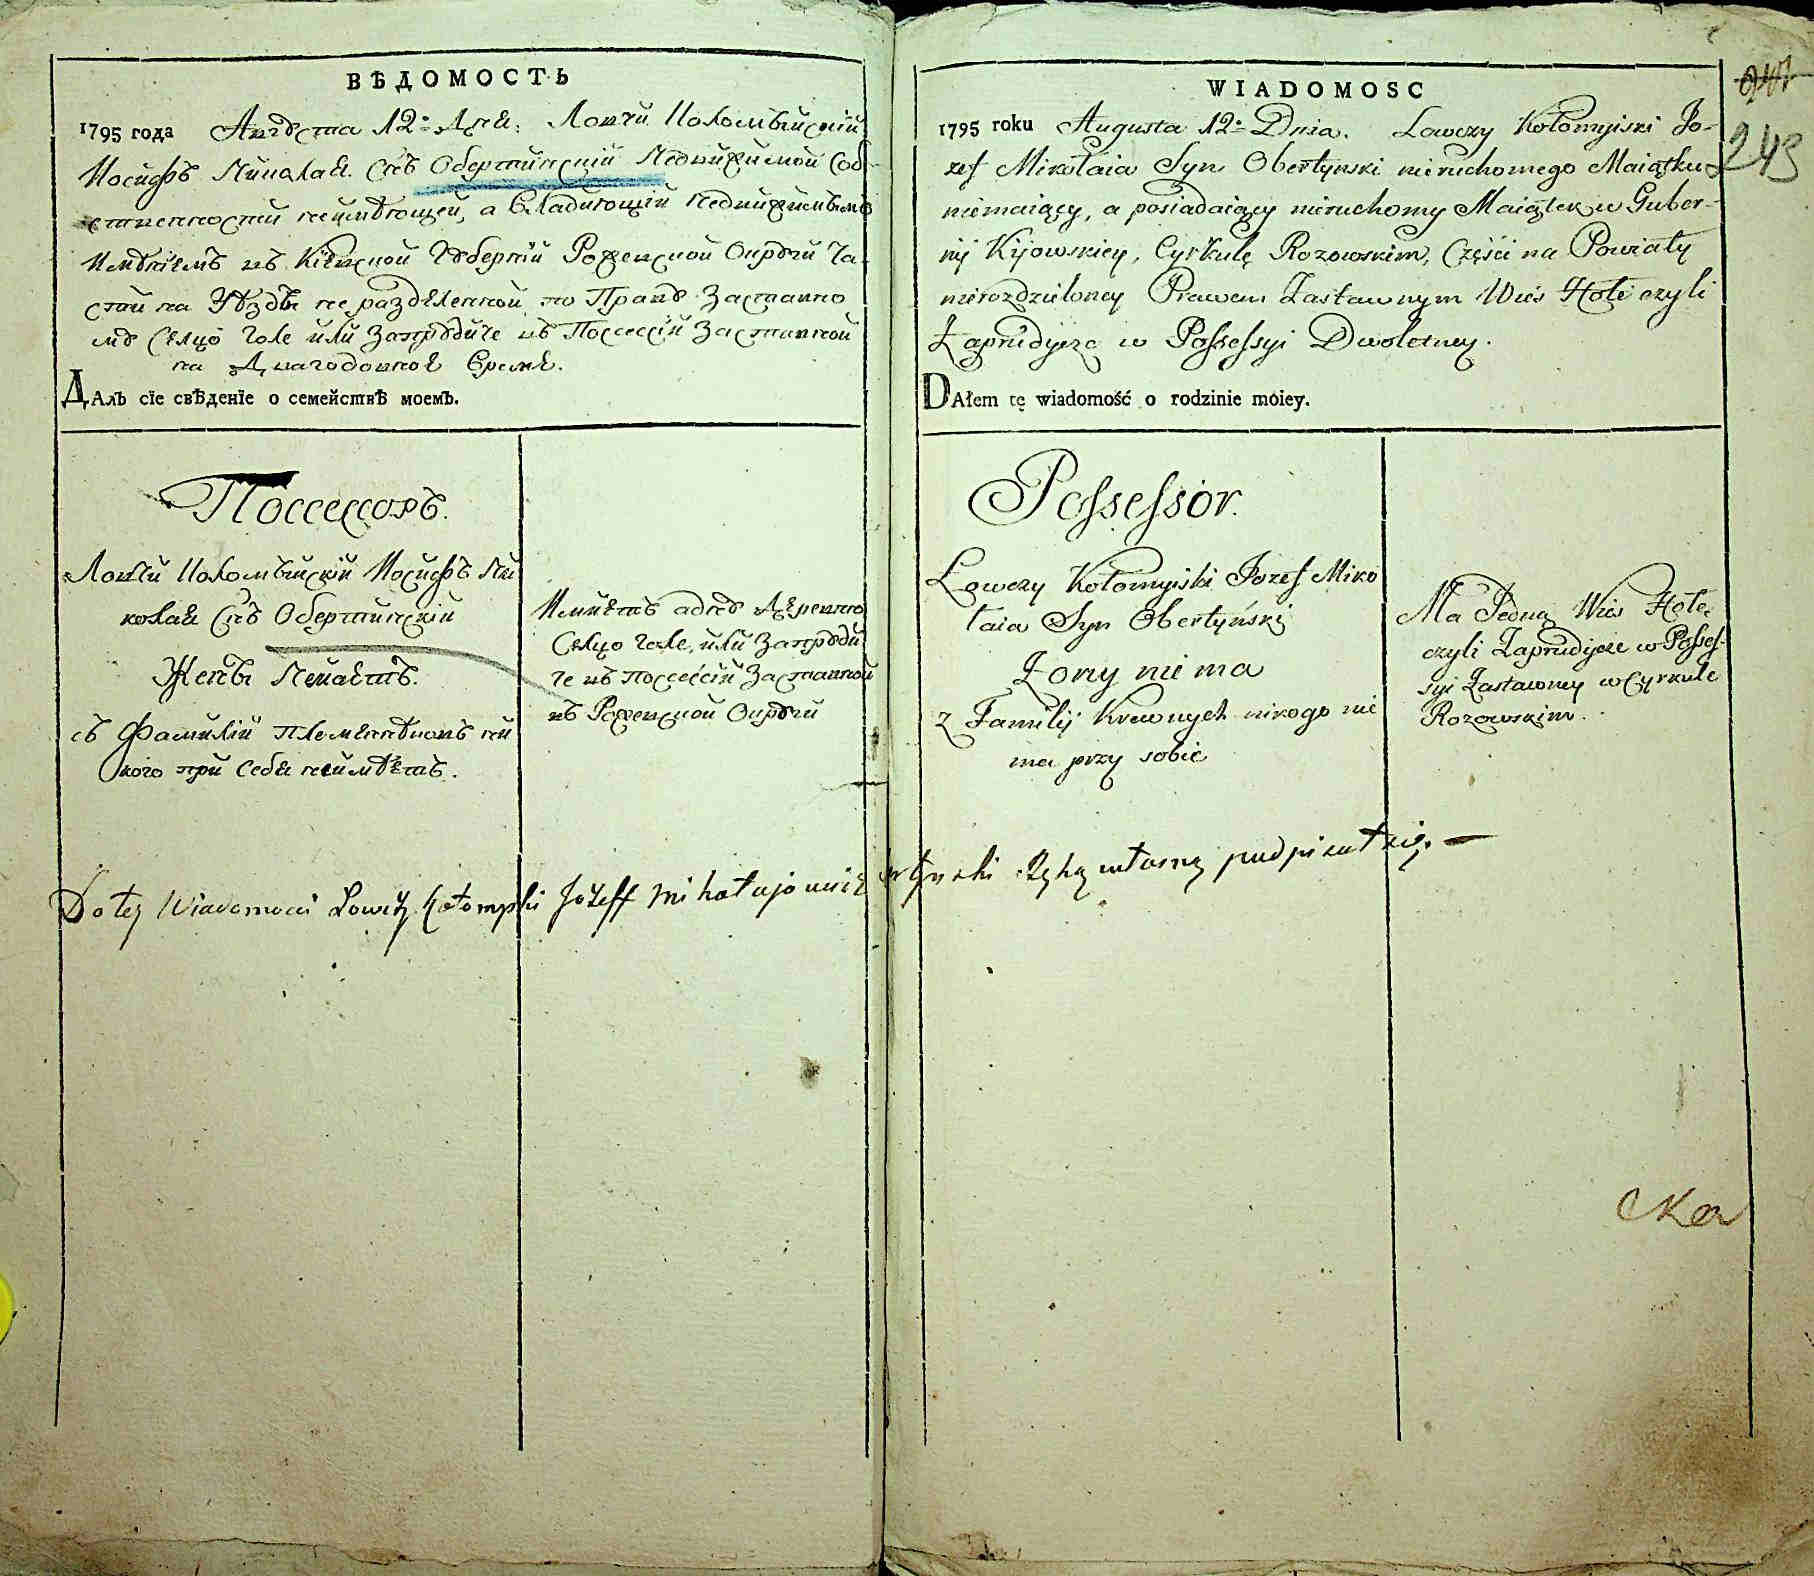 ВѢДОМОСТЬ
1795 года Августа 12: Дня. Ловчи Коломыйскій
Иосифъ Николая Снъ Обертинскій Недвижимой Соб
ственностѣй неимѣющей, а Владѣющій недвижимымъ
Имѣніемъ въ Кіевской Губерніи Рожевской Округи Ча-
сти на Уѣзды не раздѣленной по Праву Заставно
му Сельцо Голе или Запрудиче въ Поссессіи Заставной
на Двагодовное Время.
ДАлъ сїе свѣденїе о семействѣ моемъ.
Поссессоръ.
Ловчи Коломыйскій Иосифъ Ни
колая Снъ Обертинскій
Жены Неимѣетъ.
съ Фамиліи Племенниковъ ни
кого при Себя неимѣетъ.
Имѣетъ одну Деревню
Сельцо Голе, или Запруди
че въ Поссессіи Заставной
въ Рожевской Округи
WIADOMOSC
247
243
1795 roku Augusta 12: Dnia. Lowczy Kołomyiski Jo-
zef Mikołaia Syn Obertynski nieruchomego Maiątku
niemaiący, a posiadaiący nieruchomy Maiątek w Guber-
nij Kijowskiey, Cyrkulę Rozowskim, Części na Powiaty
nierozdzieloney Prawem Zastawnym Wieś Hołe czyli
Zaprudycze w Possessyi Dwoletney.
DAłem tę wiadomość o rodzinie moiey.
Possessor.
Łowczy Kołomyiski Jozef Miko
łaia Syn Obertyński
Żony nie ma
z Familij Krewnych nikogo nie
ma przy sobie
Ma Jedną Wieś Hołe,
czyli Zaprudycze w Posses-
syi Zastawney w Cyrkule
Rozowskim.
Do tey Wiadomosci Łowczy Kołomyski Jozeff Mikołajowicz ertynski Ręką własną podpisał się.
ска